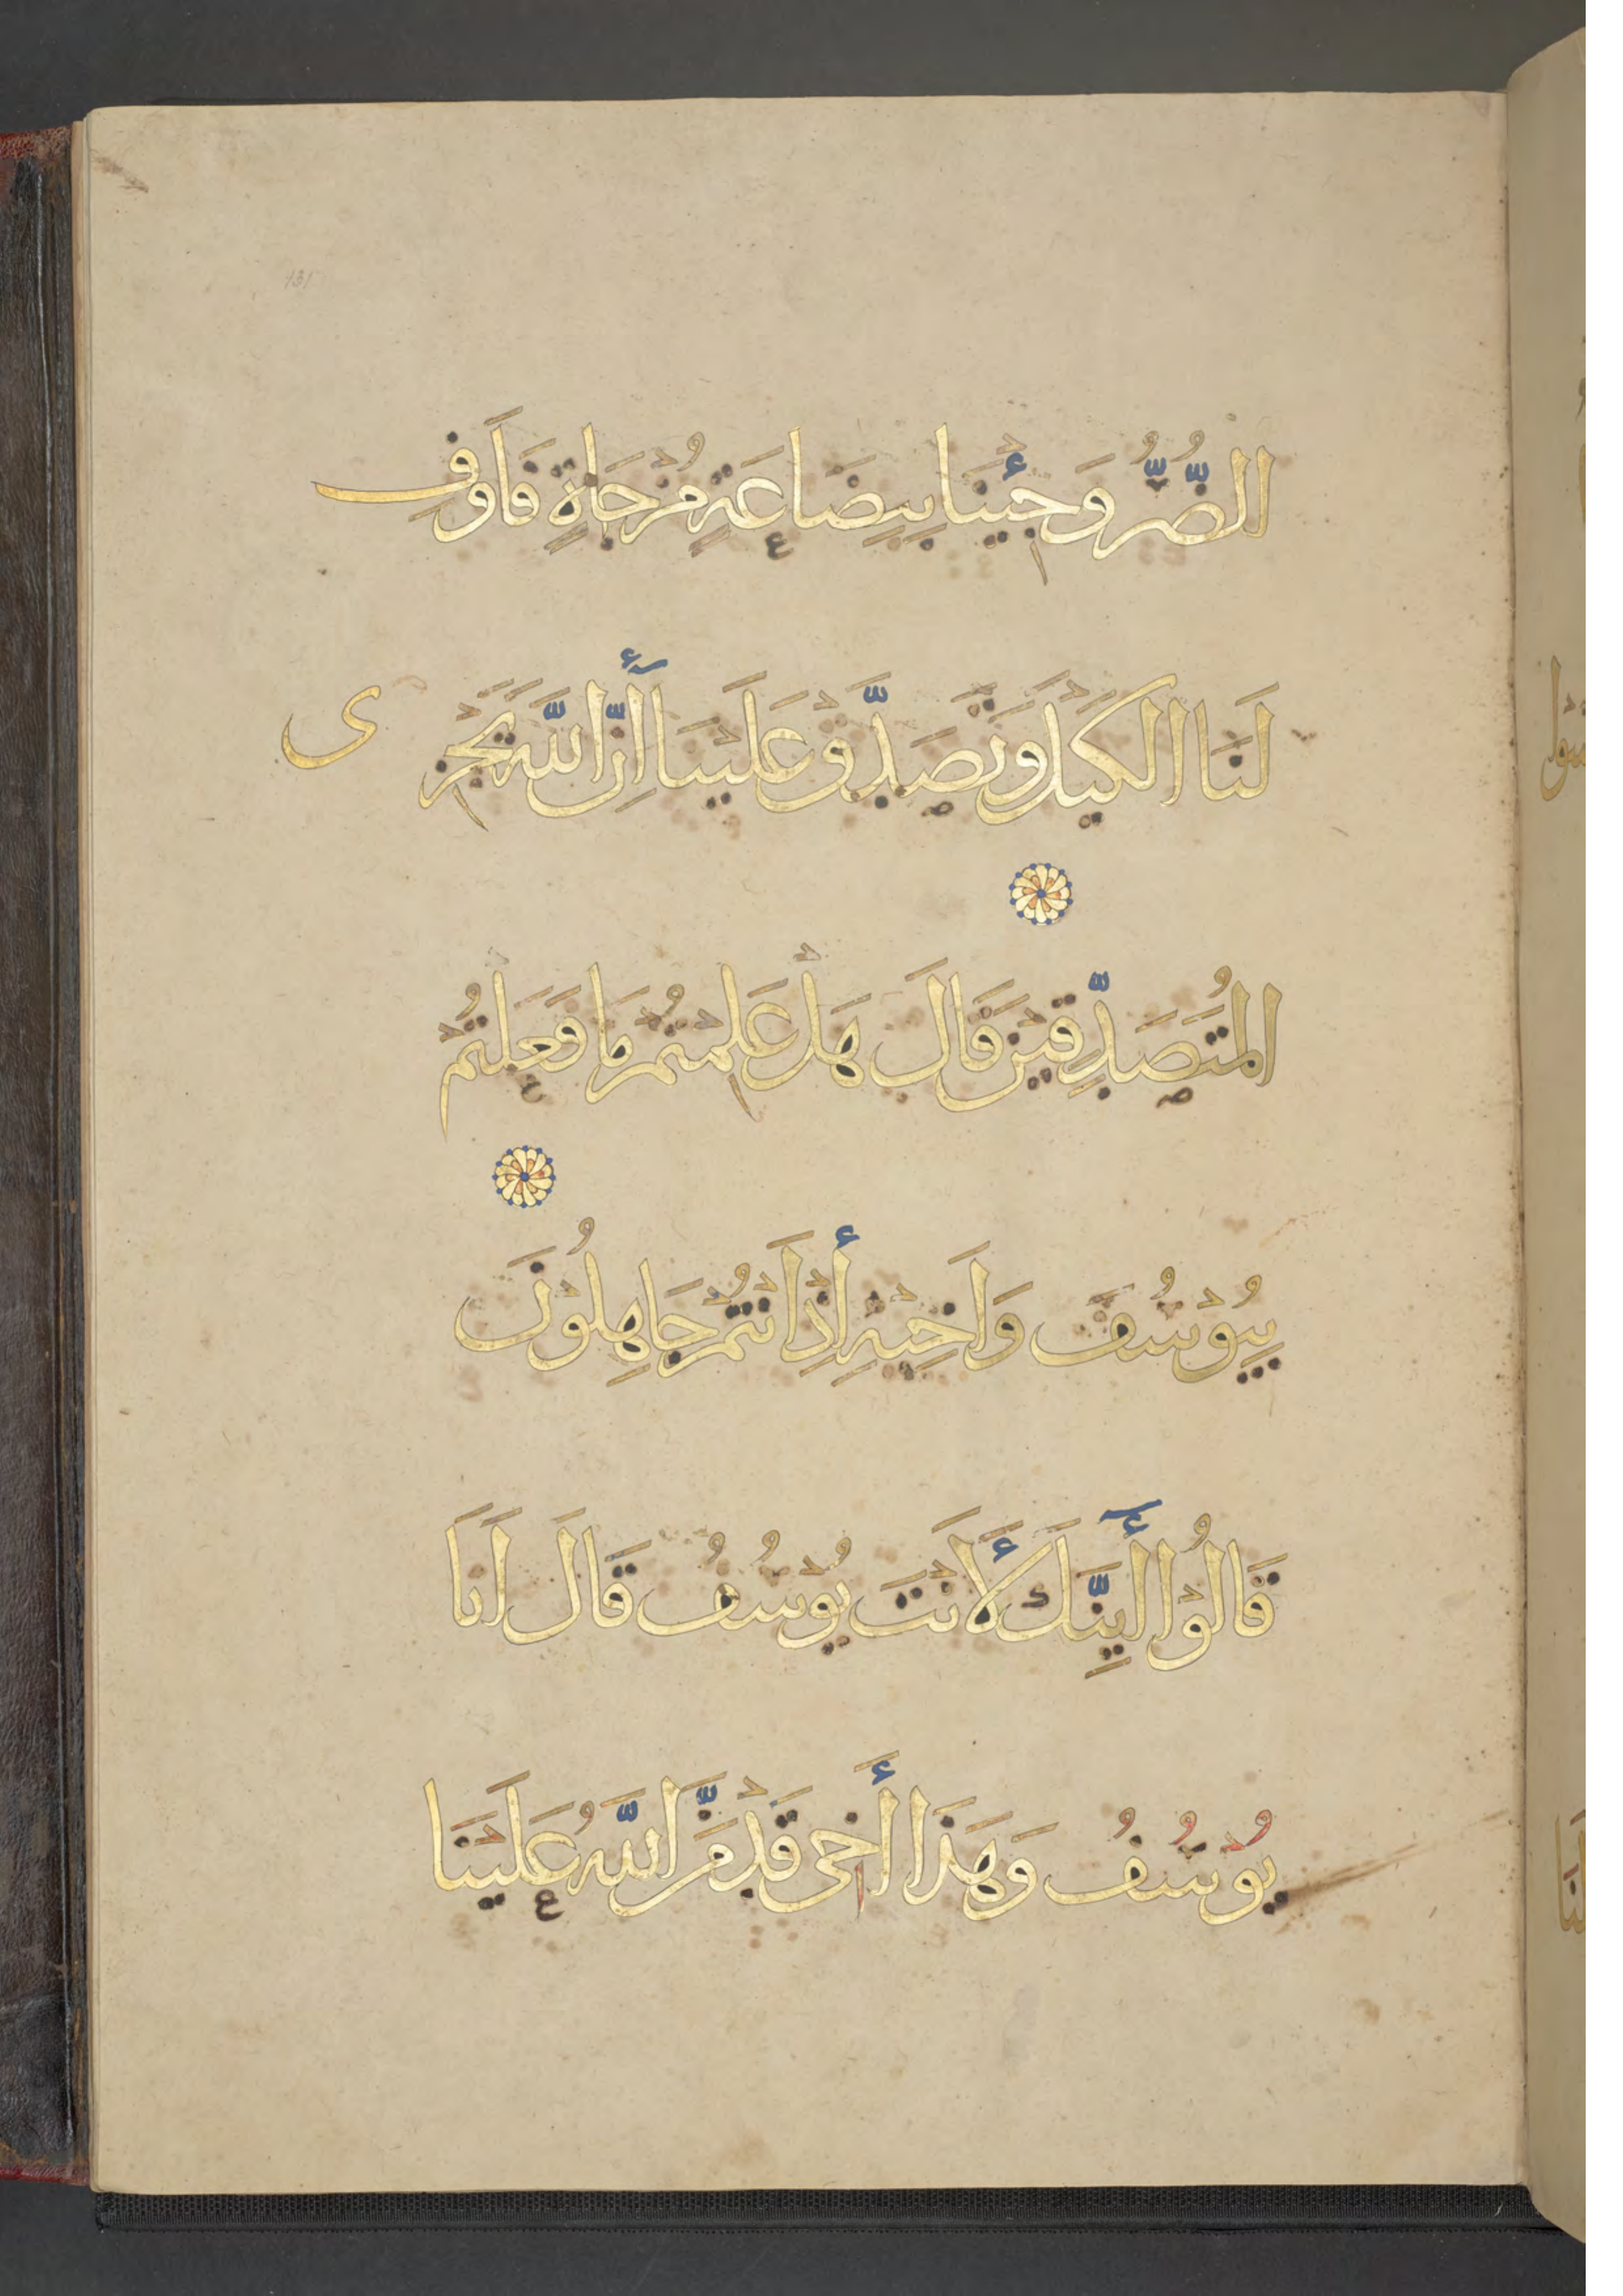 الضُّرُّ وَجِئْنَا بِبِضَاعَةٍ مُزْجَاةٍ فَاَوْفِ
لَنَا الْكَيْلَ وَتَصَدَّقْ عَلَيْنَا أِنَّ اللَّهَ يَجْزِى
الْمُتَصَدِّقِيْنَ قَالَ هَلْ عَلِمْتُمْ مَا فَعَلْتُمْ
بِيُوْسُفَ وَاَخِيْهِ أِذْ اَنْتُمْ جَاهِلُوْنَ
قَالُوْا أَيِنَّكَ لَأَنْتَ يُوْسُفُ قَالَ اَنَا
يُوْسُفُ وَهَذَا أَخِى قَدْ مَنَّ اللَّهُ عَلَيْنَا
131